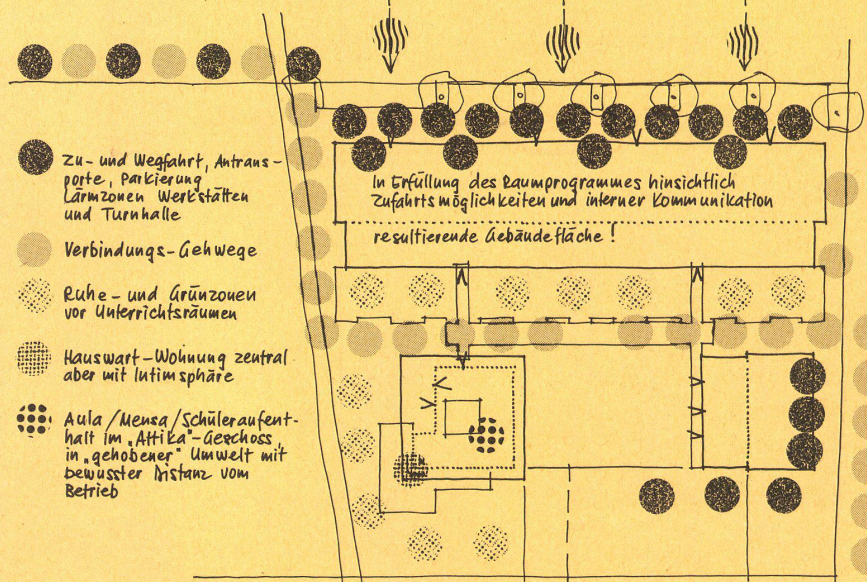 Zu- und Wegfahrt, Antrans-
porte, Parkierung,
Lärmzonen Werkstätten
und Turnhalle
Verbindungs-Gehwege
Ruhe- und Grünzonen
vor Unterrichtsräumen
Hauswart-Wohnung zentral
aber mit Intimsphäre
Aula/Mensa/Schüleraufent-
halt im "Attika"-Geschoss,
in "gehobener" Umwelt mit
bewusster Distanz vom
Betrieb
In Erfüllung des Raumprogrammes hinsichtlich
Zufahrtsmöglichkeiten und interner Kommunikation
resultierende Gebäudefläche!